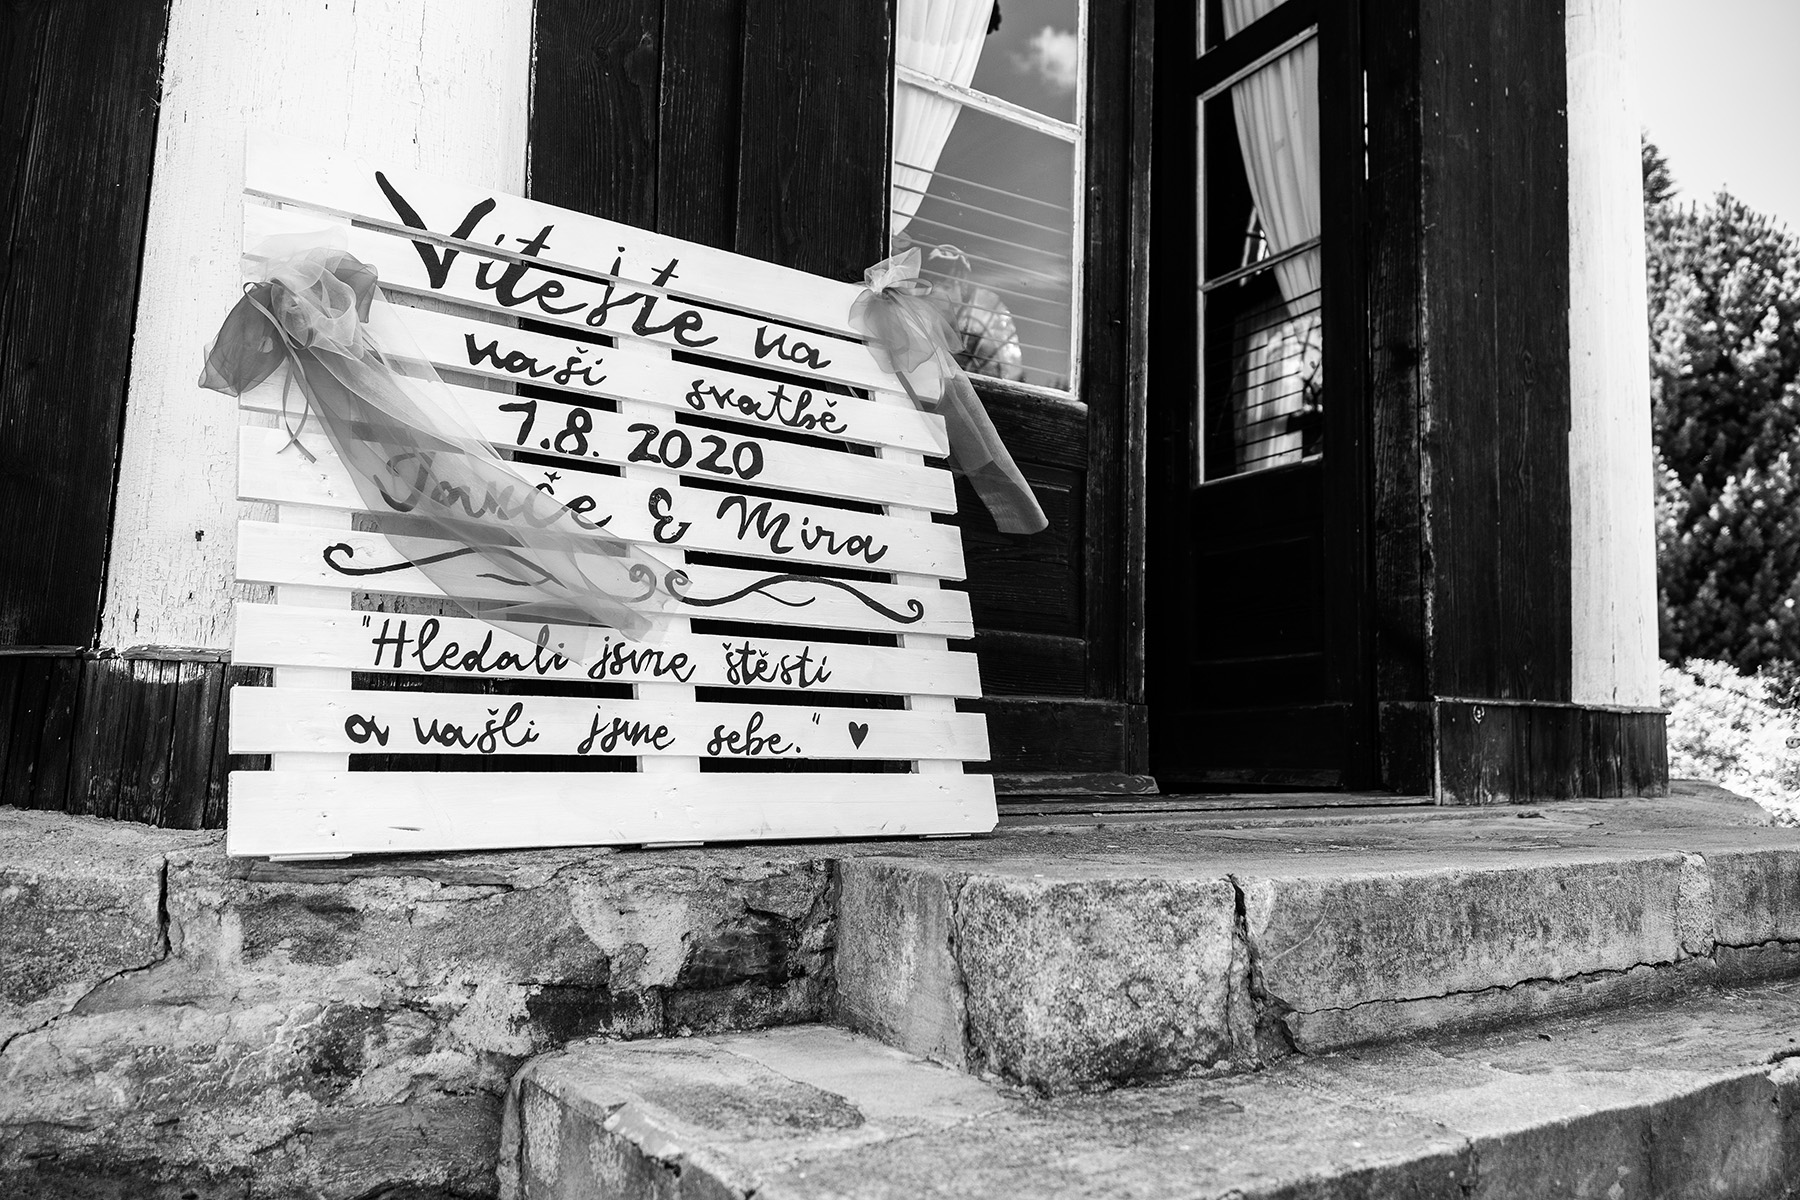 Vitejte na
naší svatbě
1.8. 2020
& Mira
"Hledali jsme štěstí
a našli jsme sebe." ♥